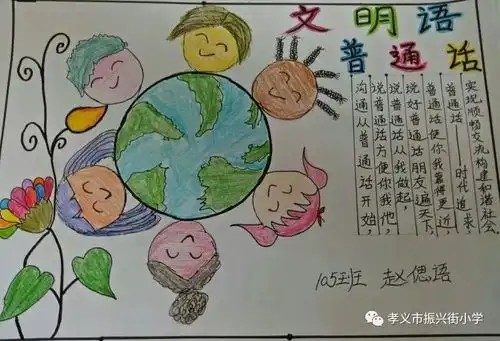 文明语
普通话
实现顺畅交流构建和谐社会。
普通话——时代追求,
普通话使你我靠得更近,
说好普通话朋友遍天下,
说普通话从我做起,
说普通话方便你我他,
沟通从普通话开始,
105班 赵偲语
孝义市振兴街小学